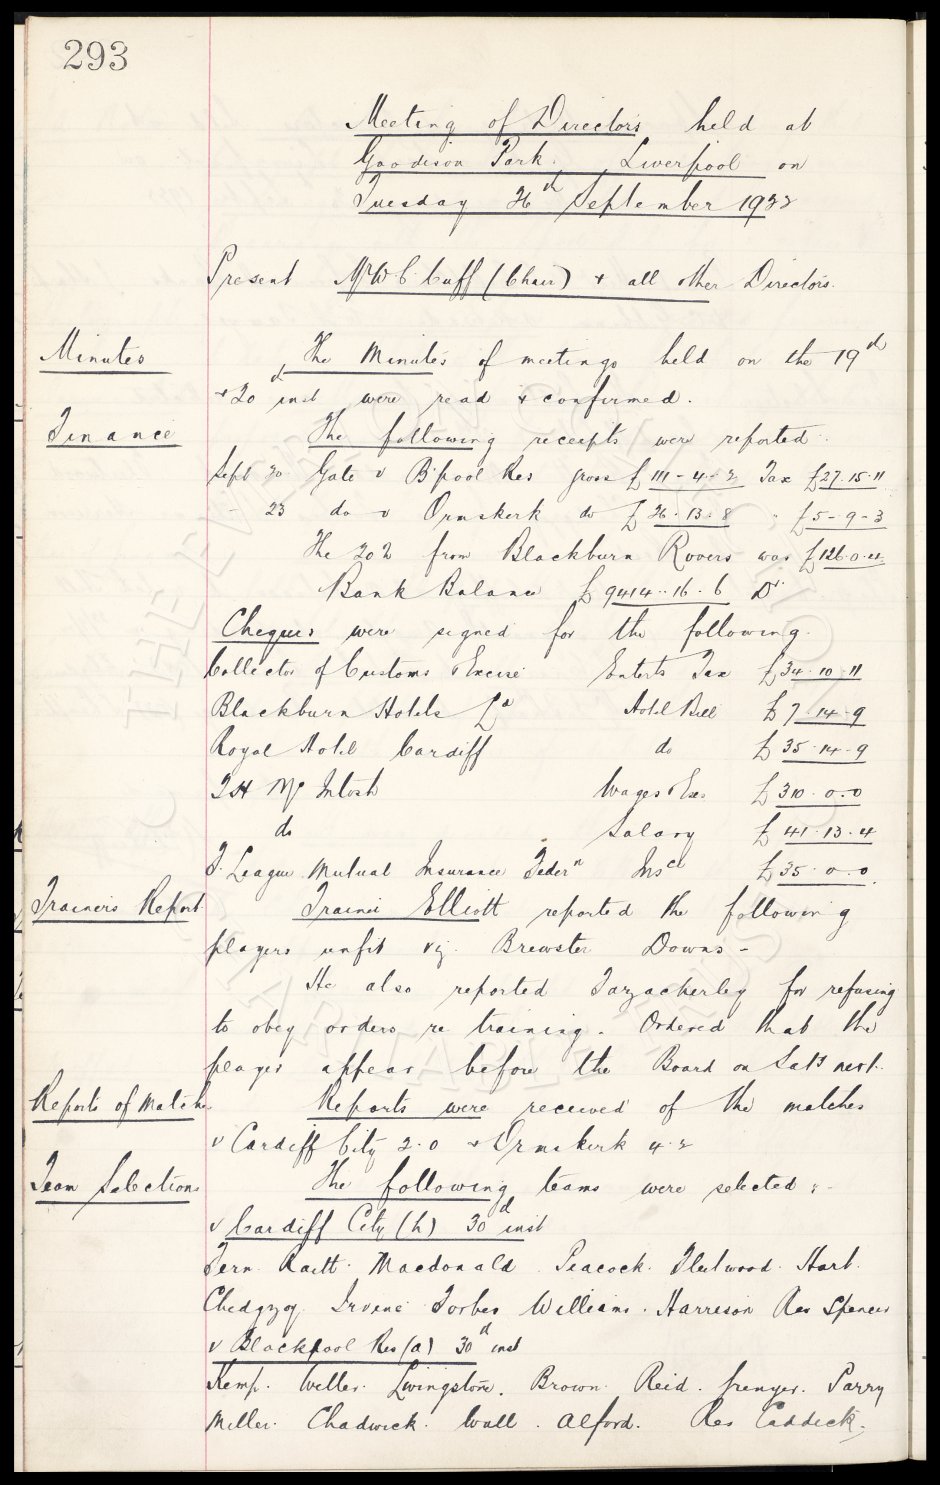 293
Meeting of Directors held at
Goodison Park. Liverpool on
Tuesday 26th September 1922
Present Mr W C Cuff (Chair) + all other Directors.
Minutes The Minutes of meetings held on the 19th
+ 20th inst were read & confirmed.
Finance The following receipts were reported.
Sept 20 Gate v B'pool Res gross £111-4-2 Tax £27.15.11
" 23 do v Ormskirk do £26.13.8 " £5-9-3
The 20% from Blackburn Rovers was £126.0.4
Bank Balance £9414..16.6 Dr
Cheques were signed for the following.
Collector of Customs & Excise Enterts Tax £34.10.11
Blackburn Hotels Ld Hotel Bill £7.14.9
Royal Hotel Cardiff do £35.14.9
T H Mc Intosh Wages & Exs £310.0.0
do Salary £41.13.4
F. League Mutual Insurance Federn Insce £35.0.0.
Trainers Report Trainer Elliott reported the following
players unfit viz. Brewster Downs -
He also reported Tarzackerley for refusing
to obey orders re training. Ordered that the
player appear before the Board on Saty next.
Reports of Matches Reports were received of the matches
v Cardiff City 2.0 + Ormskirk 4.2
Team Selections The following teams were selected :-
v Cardiff City (h) 30th inst
Fern. Raitt. Macdonald. Peacock. Fleetwood. Hart.
Chedgzoy. Irvine Forbes Williams. Harrison Res Spencer
v Blackpool Res (a) 30th inst
Kemp. Weller. Livingstone. Brown. Reid. Grenyer. Parry
Miller. Chadwick. Wall. Alford. Res Caddick.